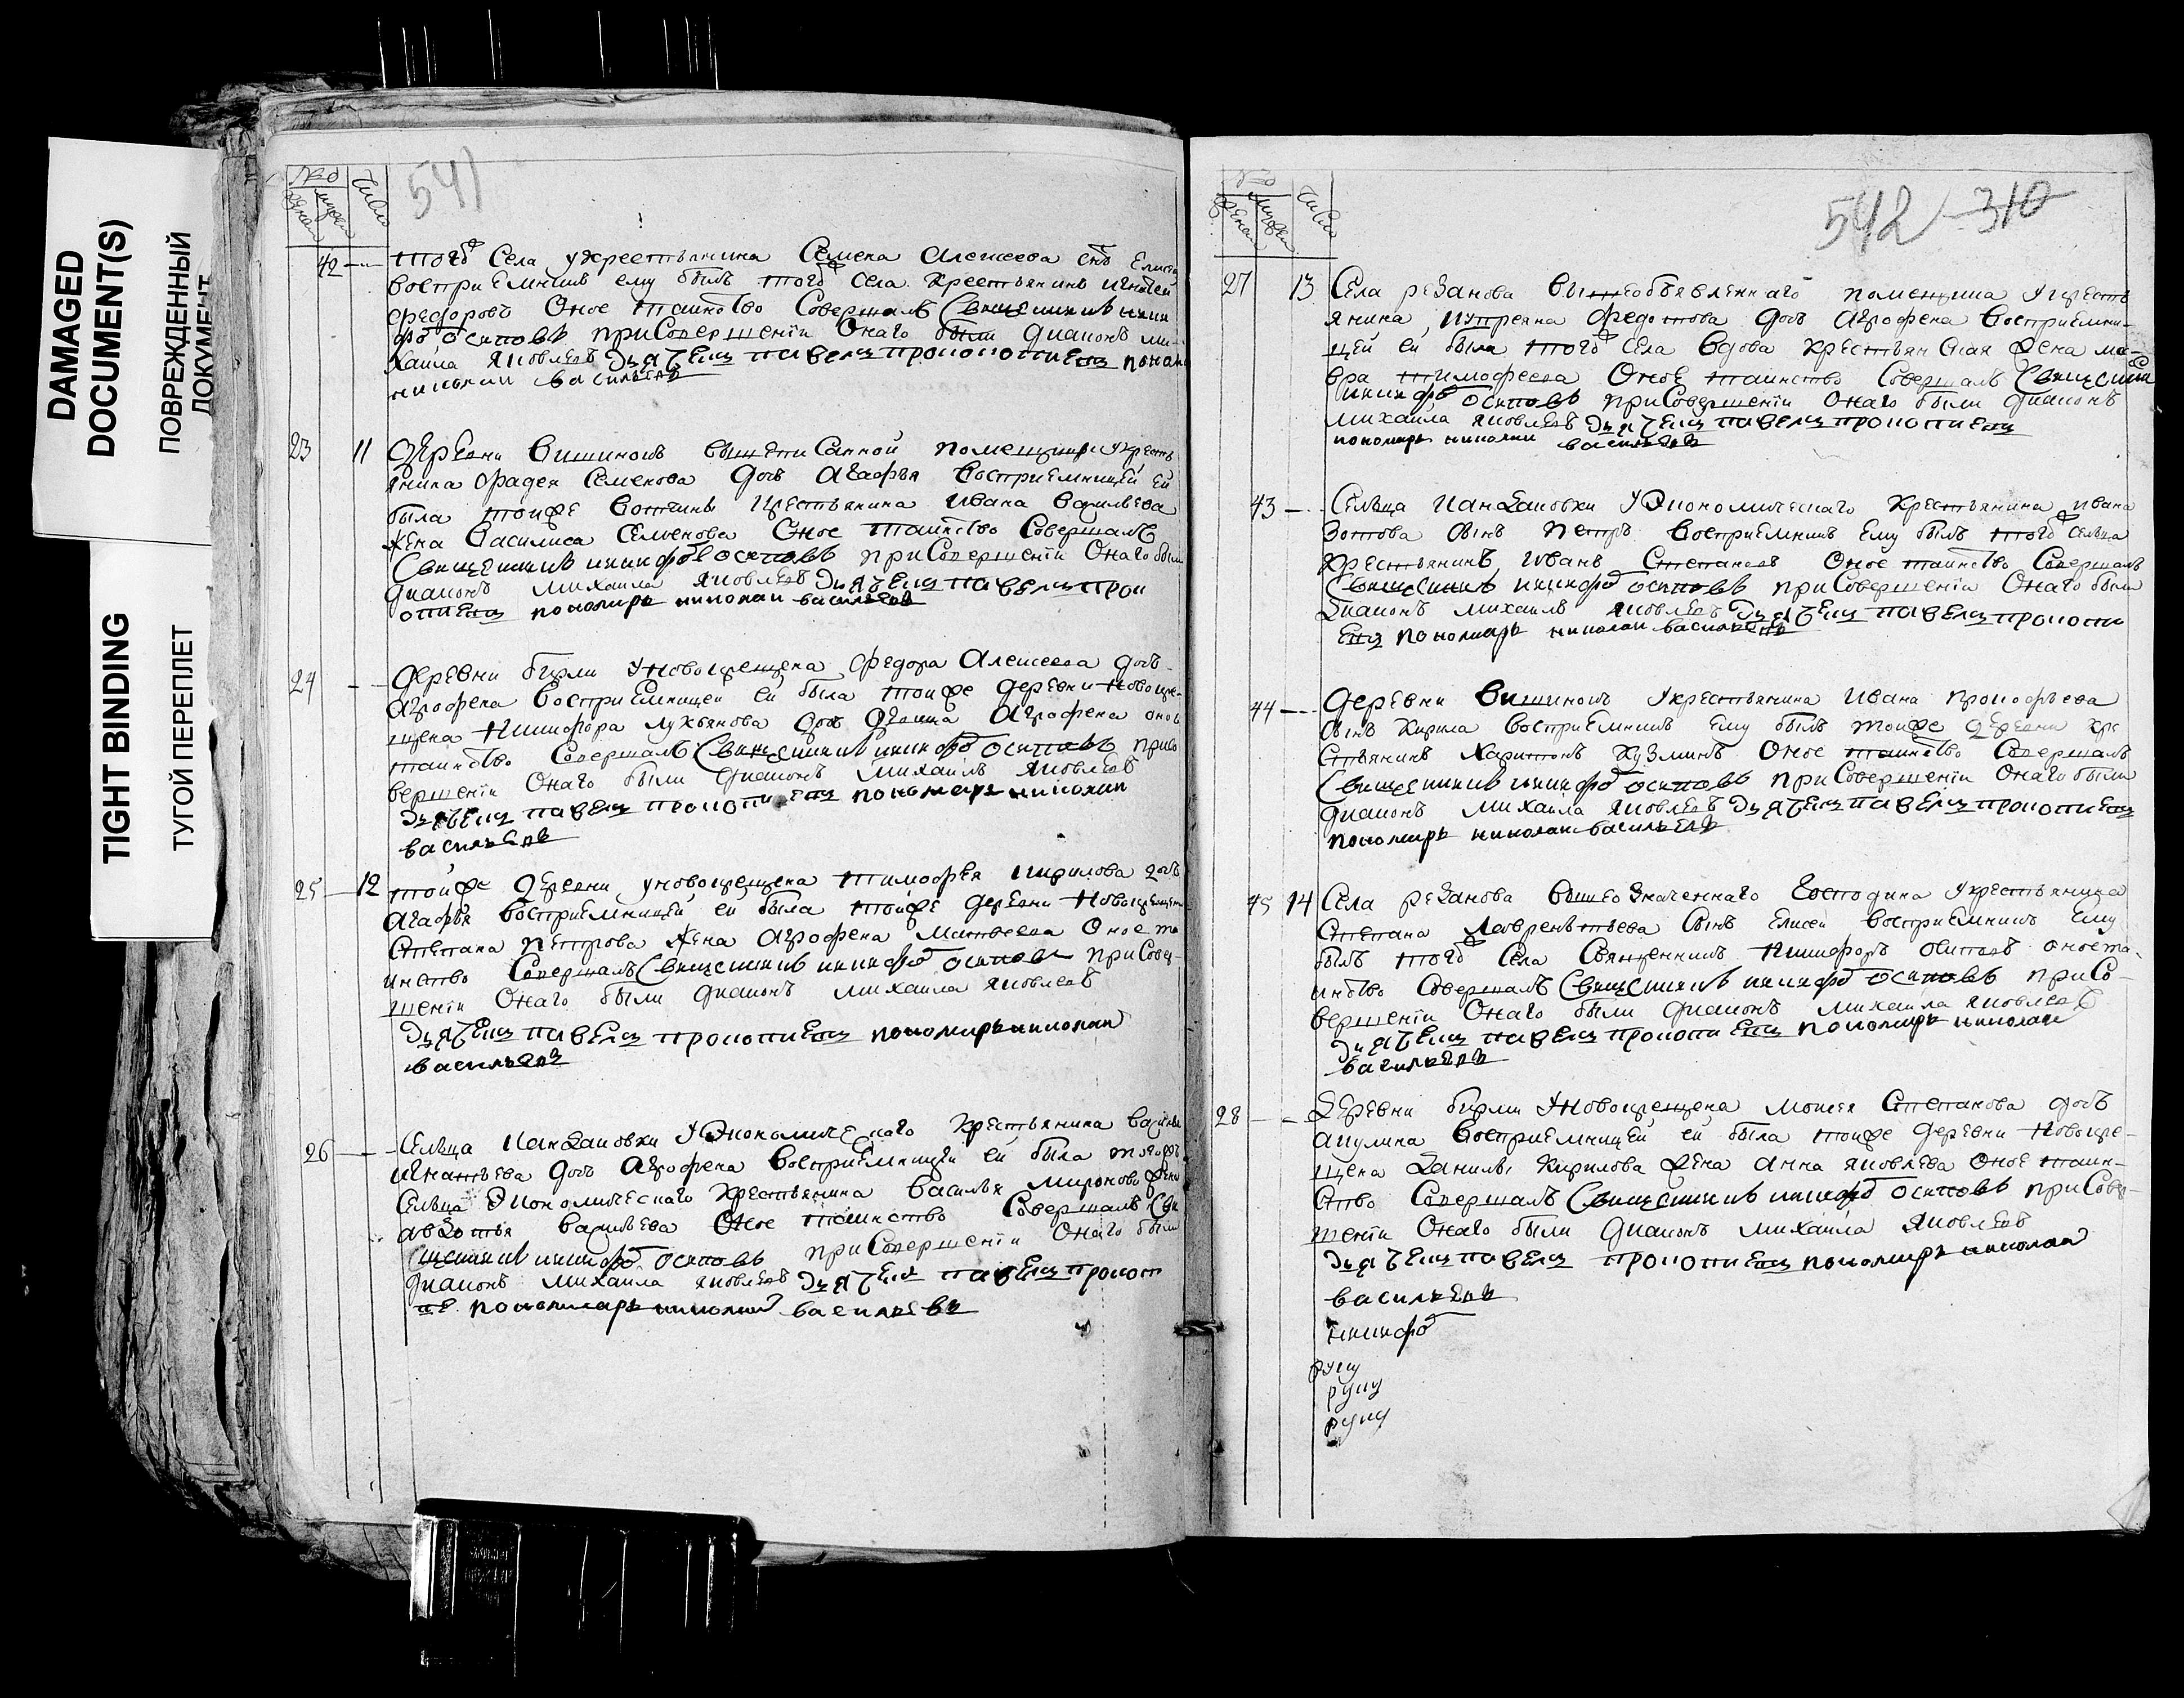 DAMAGED
DOCUMENT(S)
ПОВРЕЖДЕННЫЙ
ДОКУМЕНТ
TIGHT BINDING
ТУГОЙ ПЕРЕПЛЕТ
541
42 того села укрестьянина Семена Алексеева снъ
восприемникъ ему былъ того села крестьянинъ
федоровъ Оное таинство Совершалъ Священникъ ники
фо осиповъ при Совершенiи Онаго были дiаконъ ми
хаила яковлевъ дьячекъ павелъ прокопиевъ
николаи василевъ
23 11 деревни вишинокъ вышеписанной помещицы укресть
янина фадея Семенова дочь Агафья восприемницей ей
была тоиже вотчины крестьянина Ивана Василева
жена Василиса Семенова Оное таинство Совершалъ
Священникъ никифо осиповъ при Совершенiи Онаго были
дiаконъ михаила яковлевъ дьячекъ павелъ прок
опиевъ пономарь николаи василевъ
24 деревни бирли уновокрещена федора Алексеева дочь
Агрофена восприемницеи еи была тоиже деревни новокре
щена Никифора лукьянова дочь девица Агрофена оное
таинство Совершалъ Священникъ никифо осиповъ при Со
вершенiи Онаго были дiаконъ михаилъ яковлевъ
дьячекъ павелъ прокопиевъ пономарь николаи
василевъ
25 12 тоиже деревни уновокрещена тимофея кирилова дочь
Агафья восприемницей еи была тоиже деревни Новокрещена
Степана петрова жена Агрофена Матвеева Оное та
инство Совершалъ Священникъ никифо осиповъ при Совер
шенiи Онаго были дiаконъ михаила яковлевъ
дьячекъ павелъ прокопиевъ пономарь николаи
василевъ
26 Сельца Кандаковки уЭкономическаго крестьянина василья
Игнатьева дочь Агрофена восприемницей еи была тогожъ
Сельца Экономическаго крестьянина Василья миронова жена
авдотья Василева Оное таинство Совершалъ Свя
щенникъ никифо осиповъ при Совершенiи Онаго были
дiаконъ михаила яковлевъ дьячекъ павелъ прокоп
ие пономарь николаи василевъ
542 310
27 13 Села резанова вышеобъявленнаго помещика укресть
янина, купреяна федотова дочь Агрофена восприемни
цей еи была того села вдова крестьянская жена ма
вра тимофеева Оное таинство Совершалъ Священ
никифо осиповъ при Совершенiи Онаго были дiаконъ
михаила яковлевъ дьячекъ павелъ прокопиевъ
пономарь николаи василевъ
43 Сельца Кандаковки уЭкономическаго крестьянина ивана
Зотова сынъ Петръ восприемникъ ему былъ того сельца
крестьянинъ Иванъ Степановъ Оное таинство Совершалъ
Священникъ никифо осиповъ при Совершенiи Онаго были
дiаконъ михаилъ яковлевъ дьячекъ павелъ прокопи
евъ пономарь николаи василевъ
44 деревни вишинокъ укрестьянина Ивана прокофьева
сынъ кирила восприемникъ ему былъ тоиже деревни кре
стьянинъ харитонъ кузминъ Оное таинство Совершалъ
Священникъ никифо осиповъ при Совершенiи Онаго были
дiаконъ михаила яковлевъ дьячекъ павелъ прокопиевъ
пономарь николаи василевъ
45 14 Села резанова вышеозначеннаго господина укрестьянина
Степана Лаврентьева сынъ Елисеи восприемникъ ему
былъ того Села Священникъ Никифоръ осиповъ оное та
инство Совершалъ Священникъ никифо осиповъ при Со
вершенiи Онаго были дiаконъ михаила яковлевъ
дьячекъ павелъ прокопиевъ пономарь николаи
василевъ
28 деревни бирли уновокрещена моисея Степанова дочь
акулина восприемницей еи была тоиже деревни новокре
щена данилы кирилова жена анна яковлева Оное таин
ство Совершалъ Священникъ никифо осиповъ при Совер
шенiи Онаго были дiаконъ михаила яковлевъ
дьячекъ павелъ прокопиевъ пономарь николаи
василевъ
никифо
руку
руку
руку